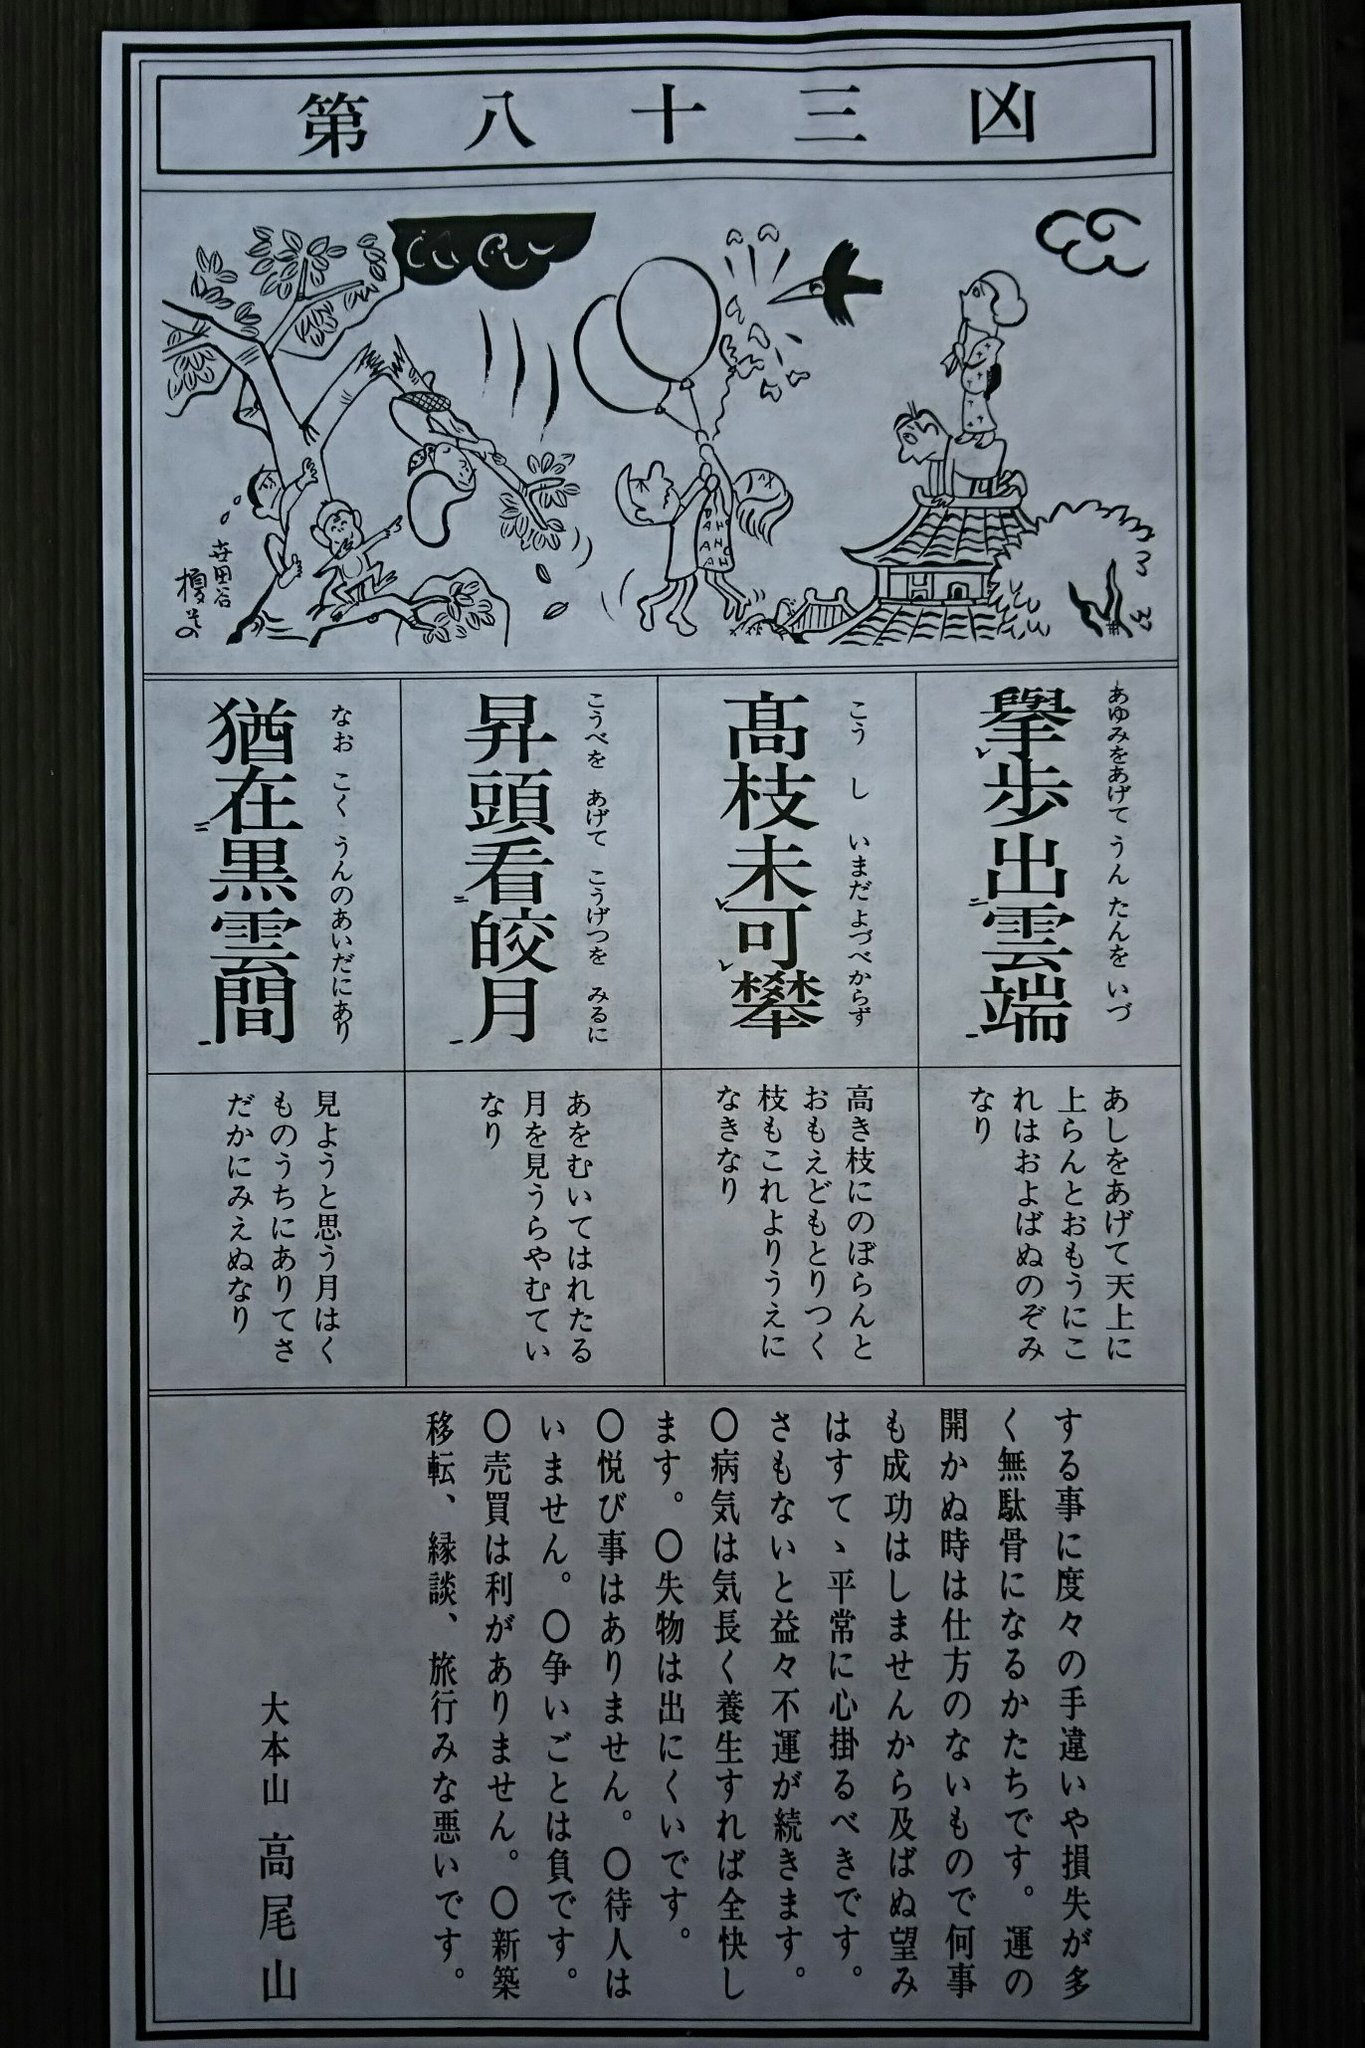 第八十三凶
擧歩出雲端
あゆみをあげて うん たんを いづ
高枝未可攀
こう し いまだ よづべからず
昇頭看皎月
こうべを あげて こうげつを みるに
猶在黒雲間
なお こく うんのあいだにあり
あしをあげて天上に
上らんとおもうにこ
れはおよばぬのぞみ
なり
高き枝にのぼらんと
おもえどもとりつく
枝もこれよりうえに
なきなり
あをむいてはれたる
月を見うらやむてい
なり
見ようと思う月はく
ものうちにありてさ
だかにみえぬなり
する事に度々の手違いや損失が多
く無駄骨になるかたちです。運の
開かぬ時は仕方のないもので何事
も成功はしませんから及ばぬ望み
はすてゝ平常に心掛るべきです。
さもないと益々不運が続きます。
〇病気は気長く養生すれば全快し
ます。〇失物は出にくいです。
〇悦び事はありません。〇待人は
いません。〇争いごとは負です。
〇売買は利がありません。〇新築
移転、縁談、旅行みな悪いです。
大本山 高尾山